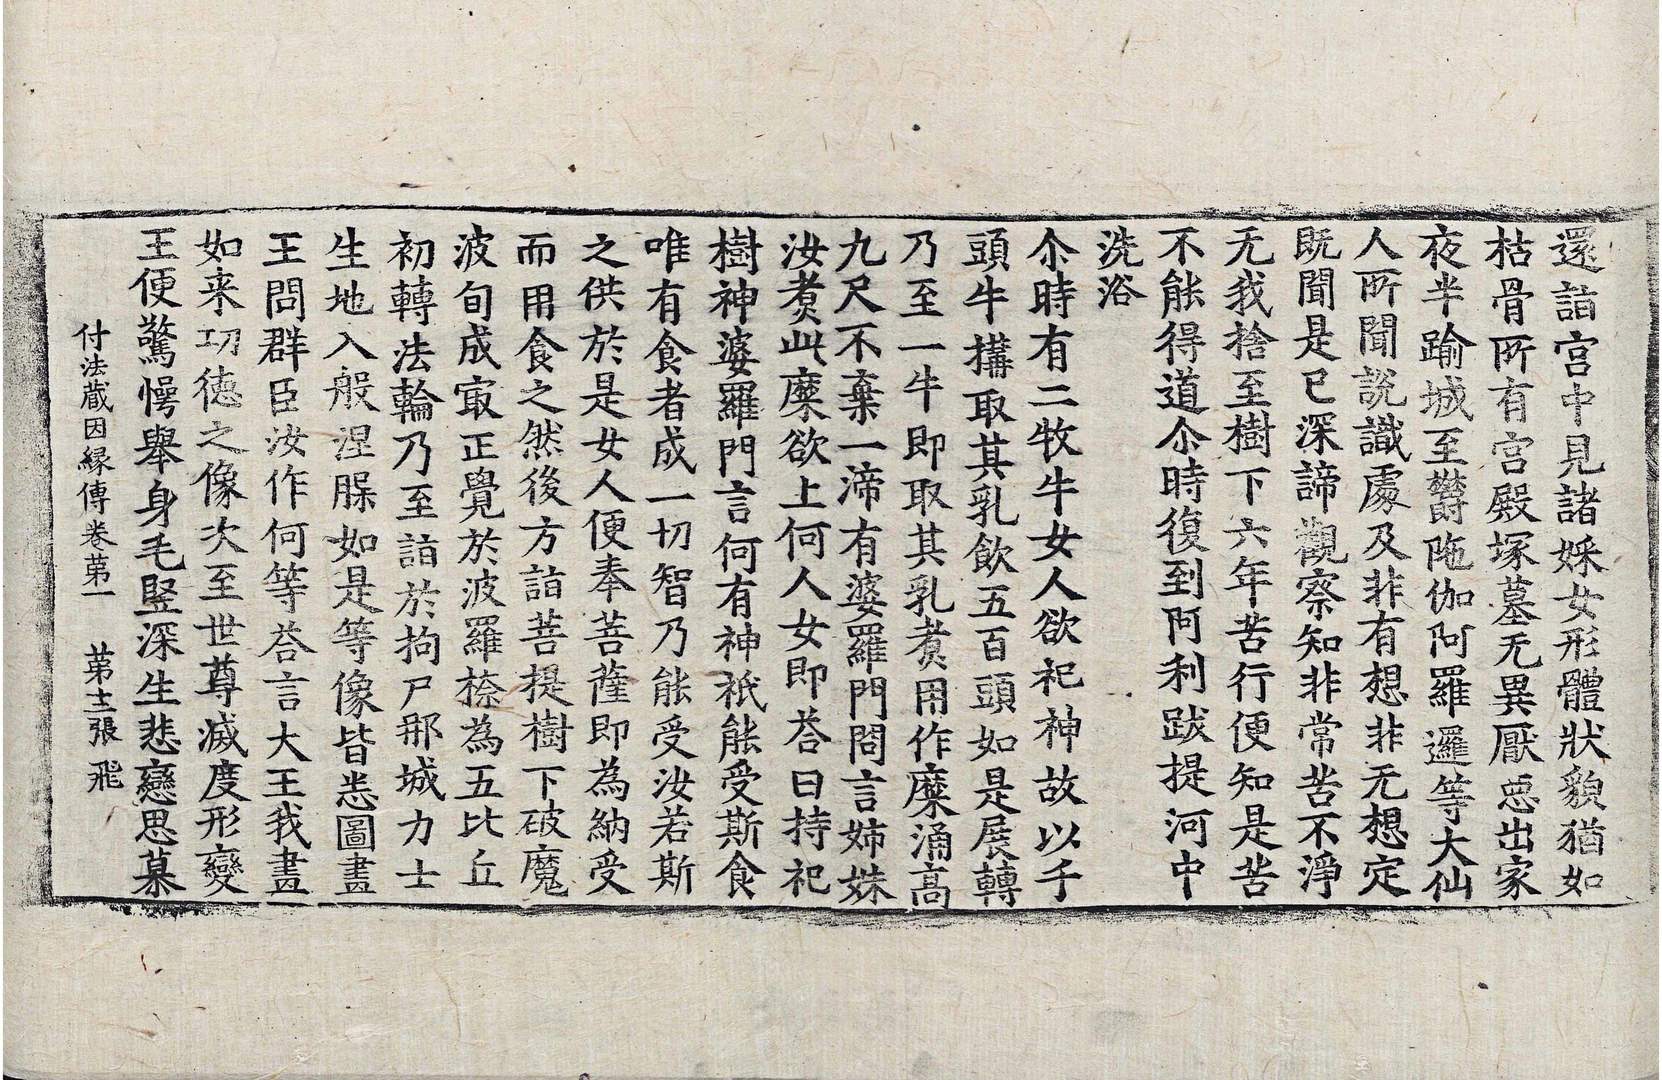 還詣宮中見諸婇女形體狀貌猶如
枯骨所有宮殿塚墓无異厭惡出家
夜半踰城至欝陁伽阿羅邏等大仙
人所聞說識處及非有想非无想定
旣聞是已深諦觀察知非常苦不淨
无我捨至樹下六年苦行便知是苦
不能得道尒時復到阿利跋提河中
洗浴
尒時有二牧牛女人欲祀神故以千
頭牛搆取其乳飲五百頭如是展轉
乃至一牛即取其乳煑用作糜涌高
九尺不棄一渧有婆羅門問言姉妹
汝煑此糜欲上何人女即荅曰持祀
樹神婆羅門言何有神祇能受斯食
唯有食者成一切智乃能受汝若斯
之供於是女人便奉菩薩即為納受
而用食之然後方詣菩提樹下破魔
波旬成㝡正覺於波羅㮈為五比丘
初轉法輪乃至詣於拘尸那城力士
生地入般涅槃如是等像皆悉圖畫
王問群臣汝作何等荅言大王我畫
如来功德之像次至世尊滅度形變
王便驚愕舉身毛竪深生悲戀思慕
付法蔵因緣傳卷苐一　苐十三張　飛